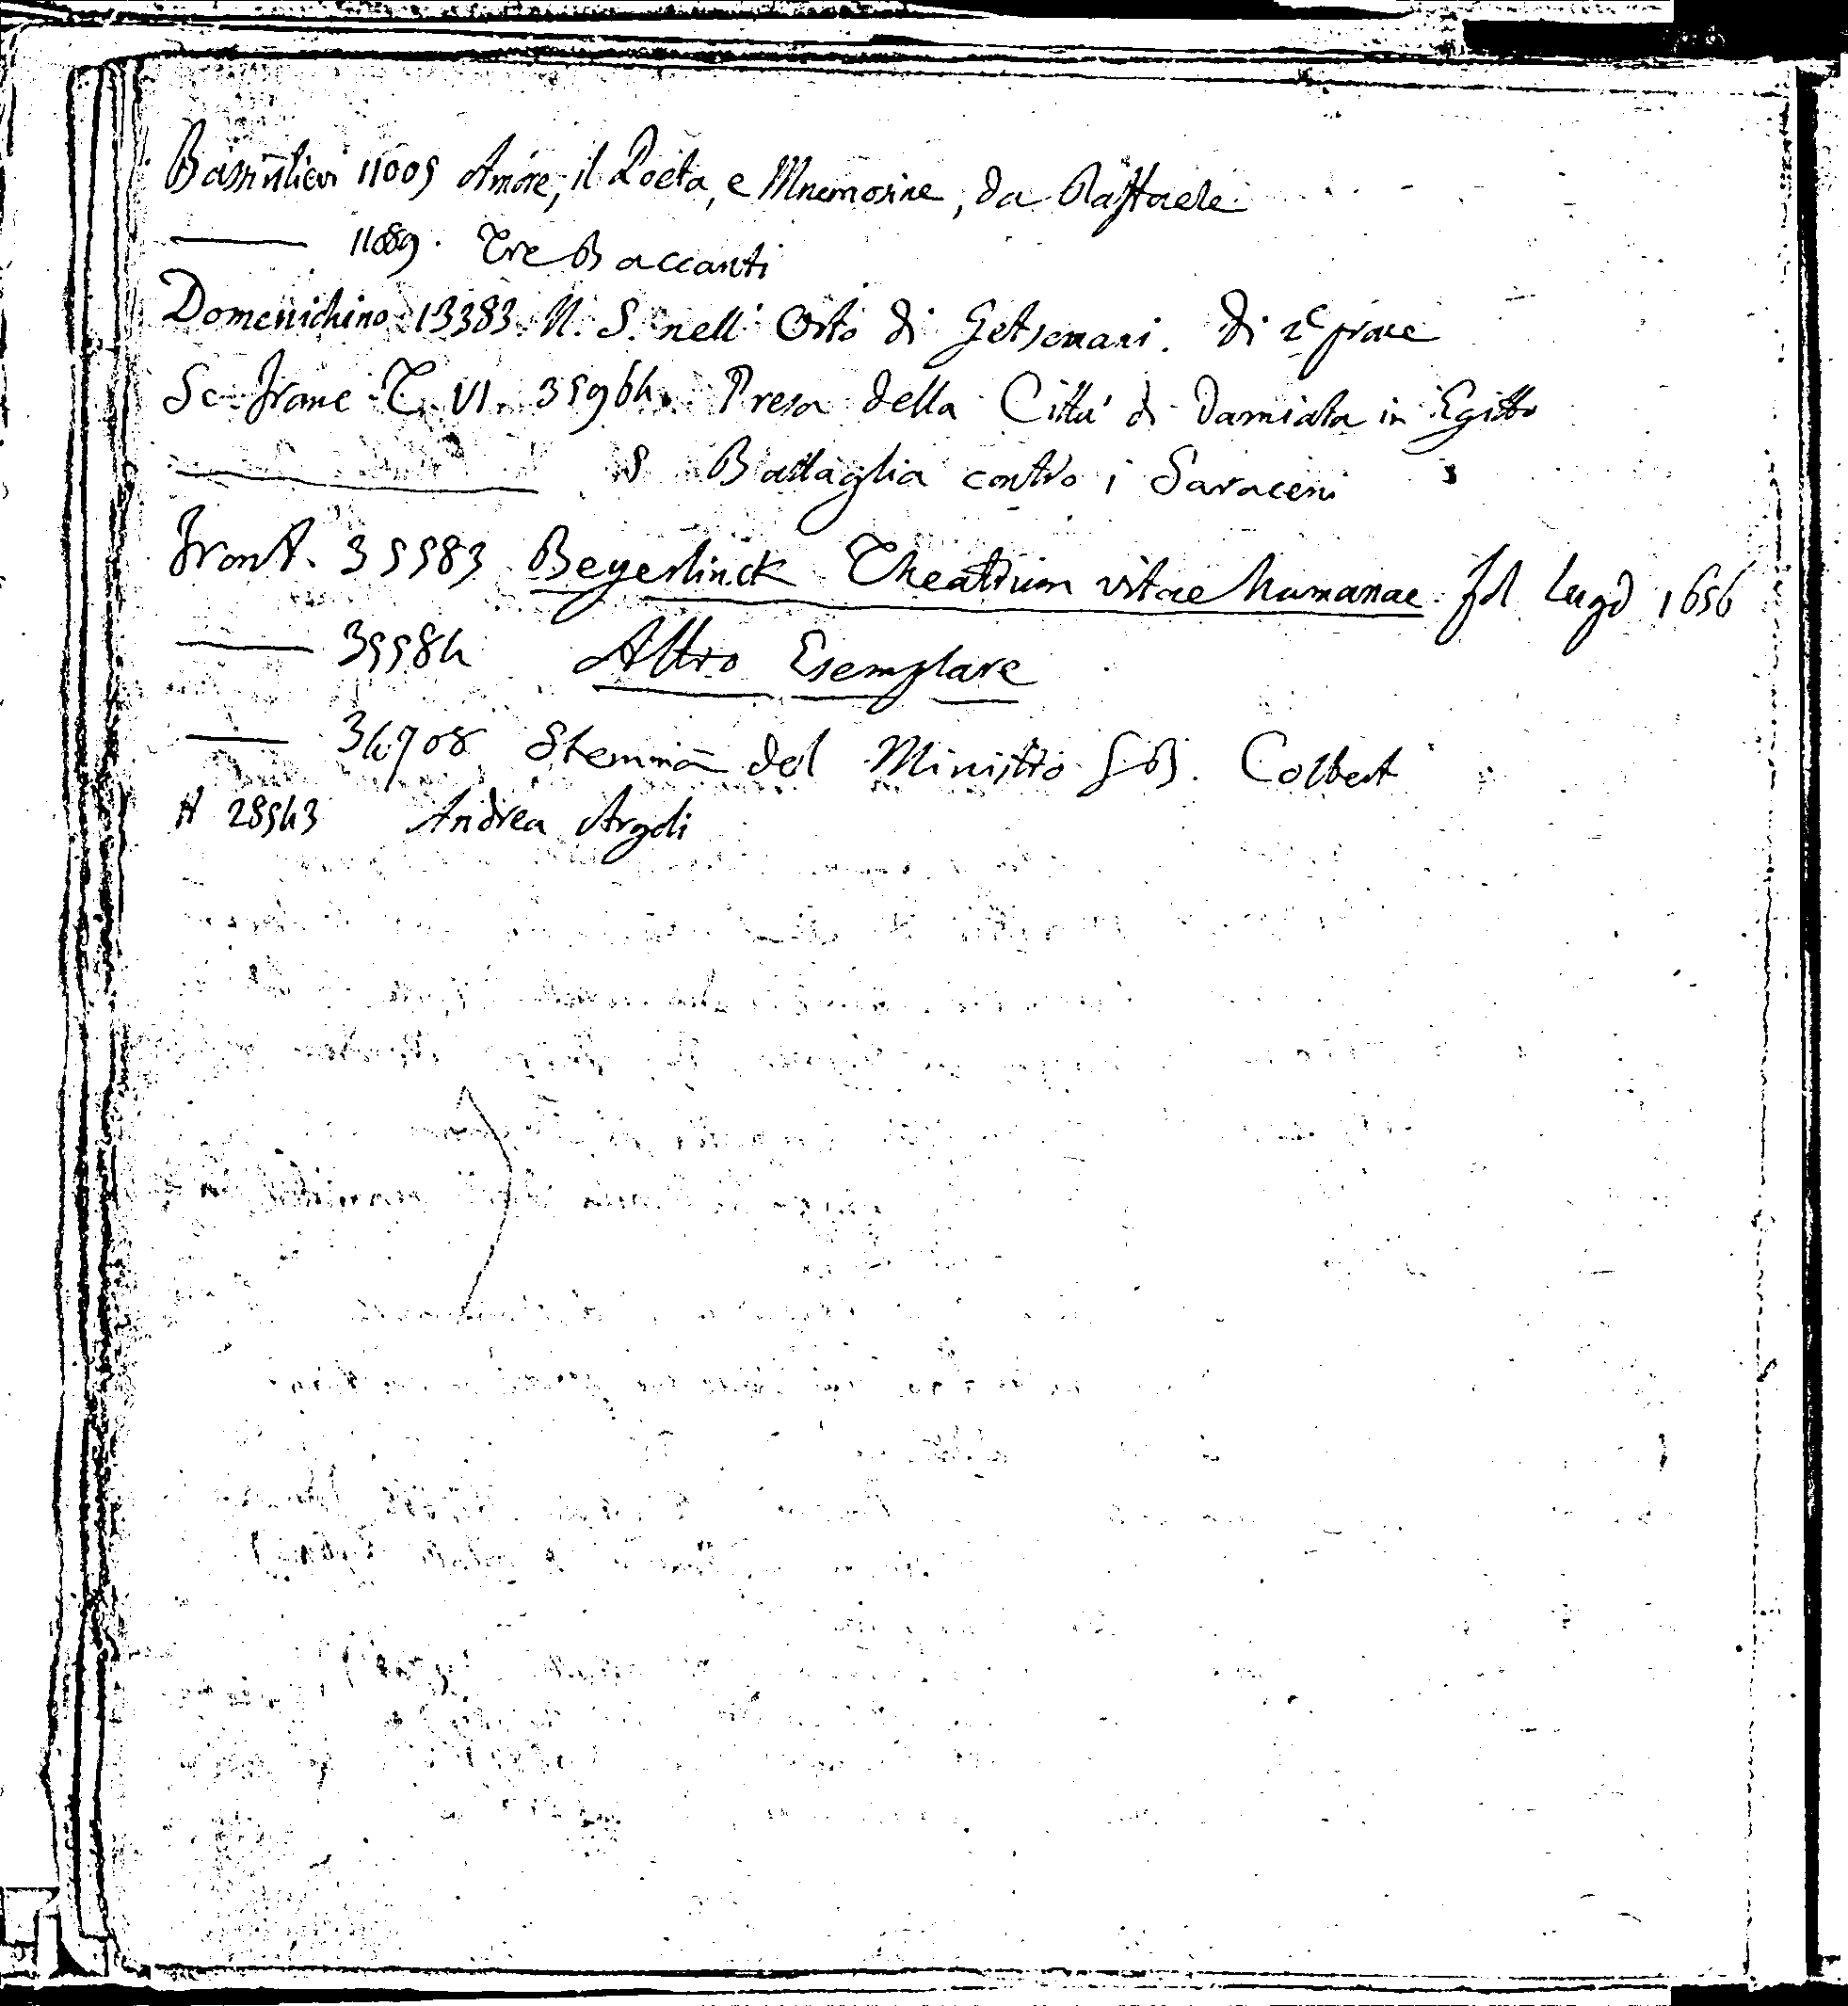 Bassirilievi 11005 Amore, il Poeta, e Mnemosine, da Raffaele
—— 11089. Tre Baccanti
Domenichino 13383. N. S. nell' Orto di Getsemani. di 2e prove
Sc. Franc. T. VI. 35964. Presa della Città di Damiata in Egitto
—— 5 Battaglia contro i Saraceni
Front. 35583 Beyerlinck Theatrum vitae humanae fol Lugd 1656
—— 35584 Altro Esemplare
—— 34708 Stemma del Ministro G B. Colbert
A 28543 Andrea Argoli